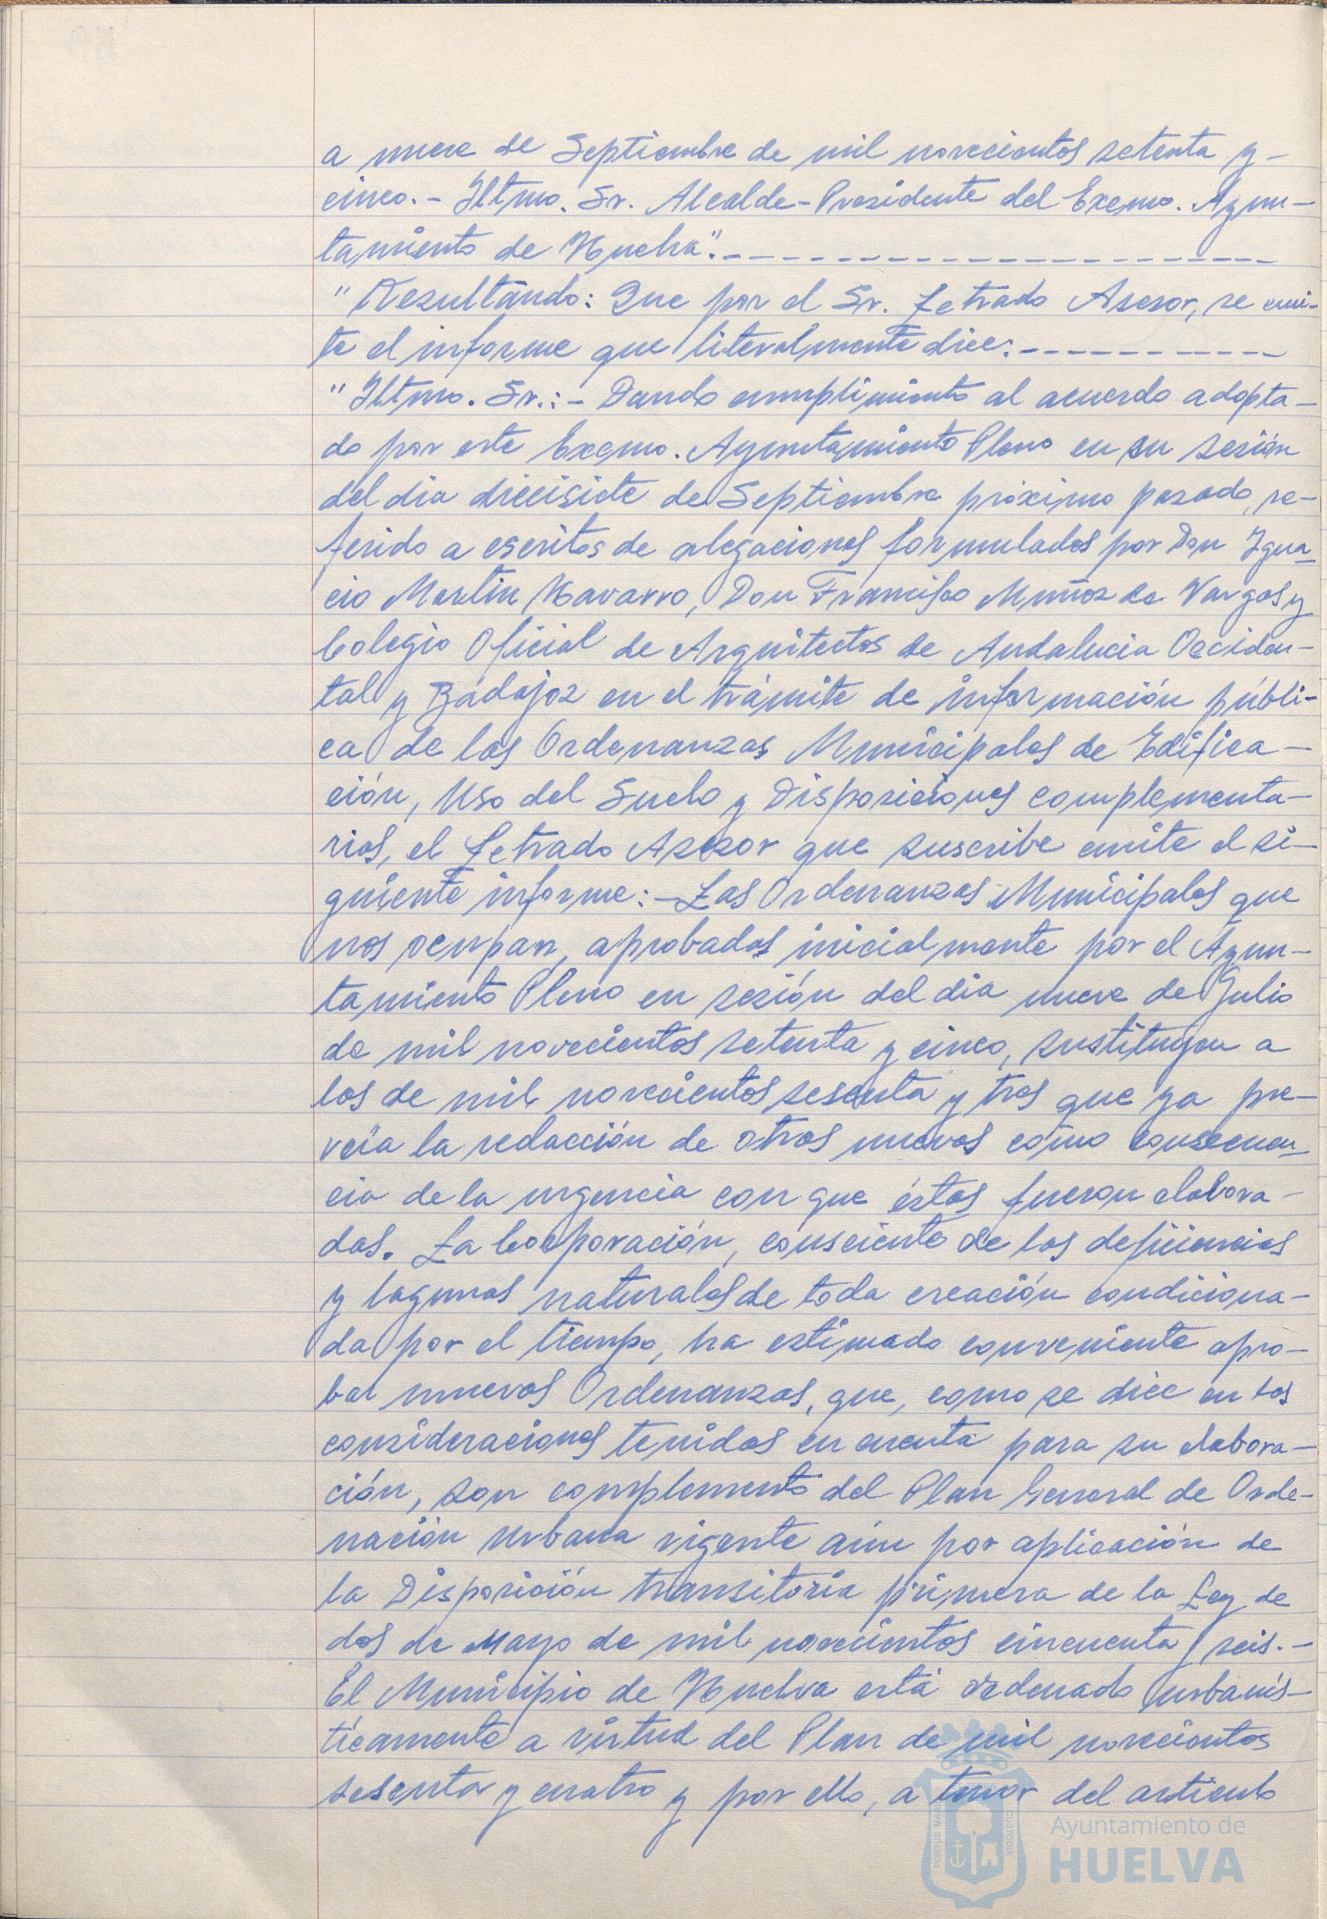 a nueve de Septiembre de mil novecientos setenta y-
cinco.- Iltmo. Sr. Alcalde-Presidente del Excmo. Ayun-
tamiento de Huelva".------------------------
"Resultando: Que por el Sr. Letrado Asesor, se emi-
te el informe que literalmente dice:------------
"Iltmo. Sr.:- Dando cumplimiento al acuerdo adopta-
do por este Excmo. Ayuntamiento Pleno en su sesión
del dia diecisiete de Septiembre próximo pasado, re-
ferido a escritos de alegaciones formulados por Don Igna-
cio Martin Navarro, Don Francisco Muñoz de Vargas y
Colegio Oficial de Arquitectos de Andalucia Occiden-
tal y Badajoz en el trámite de información públi-
ca de las Ordenanzas Municipales de Edifica-
ción, Uso del Suelo y Disposiciones complementa-
rias, el Letrado Asesor que suscribe emite el si-
guiente informe:-Las Ordenanzas Municipales que
nos ocupan, aprobadas inicialmente por el Ayun-
tamiento Pleno en sesión del dia nueve de Julio
de mil novecientos setenta y cinco, sustituyen a
las de mil novecientos sesenta y tres que ya pre-
veia la redacción de otras nuevas como consecuen-
cia de la urgencia con que éstas fueron elabora-
das. La Corporación, consciente de las deficiencias
y lagunas naturales de toda creación condiciona-
da por el tiempo, ha estimado conveniente apro-
bar nuevas Ordenanzas, que, como se dice en las
consideraciones tenidas en cuenta para su elabora-
ción, son complemento del Plan General de Orde-
nación Urbana vigente aún por aplicación de
la Disposición transitoria primera de la Ley de
dos de Mayo de mil novecientos cincuenta y seis.-
El Municipio de Huelva está ordenado urbanís-
ticamente a virtud del Plan de mil novecientos
sesenta y cuatro y por ello, a tenor del articulo
Ayuntamiento de
HUELVA